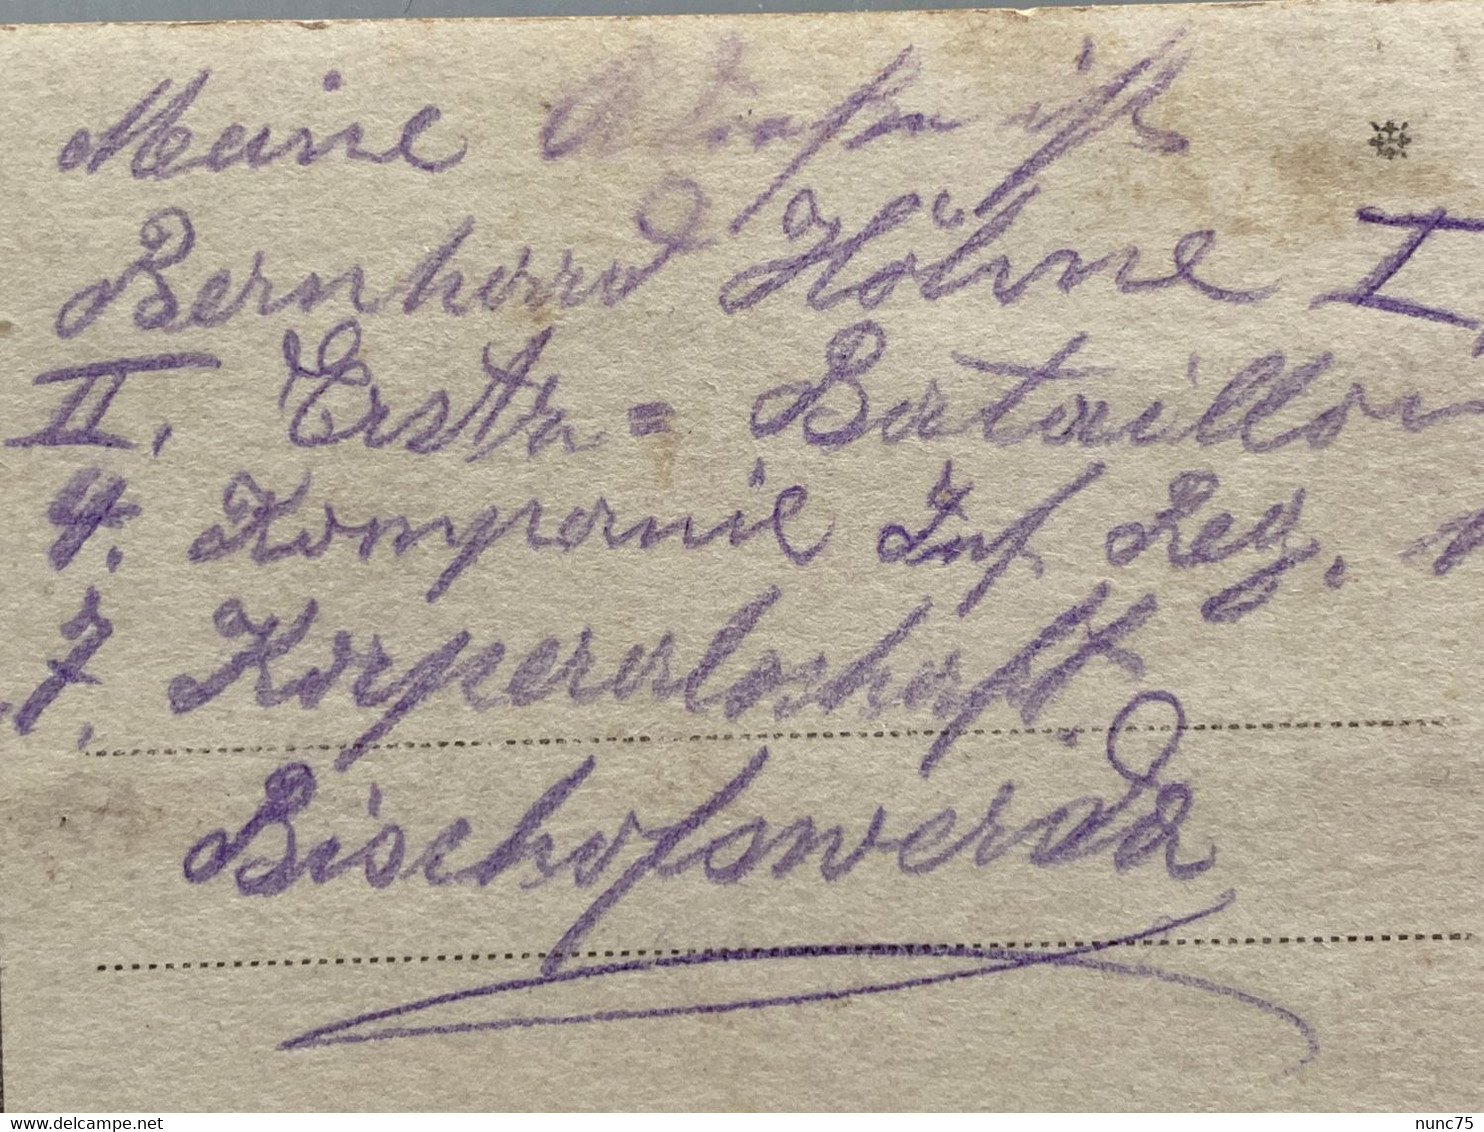 Meine Adresse ist
Bernhard Höhne I,
II. Ersatz = Bataillon
4. Kompanie Inf Reg.
7. Korperalschaft.
Bischofswerda
delcampe.net
nunc75